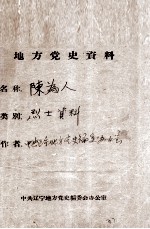 地方党史資料
名称: 陳為人
类别: 烈士資料
作者:
中共辽宁地方党史編委会办公室